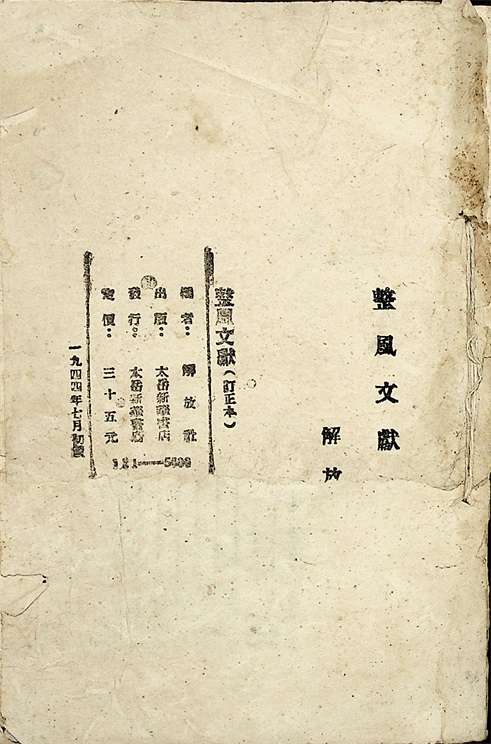 整風文獻
解放
整風文獻(訂正本)
編者：解放社
出版：太岳新華書店
發行：太岳新華書店
定價：三十五元
1—5000
一九四四年七月初版